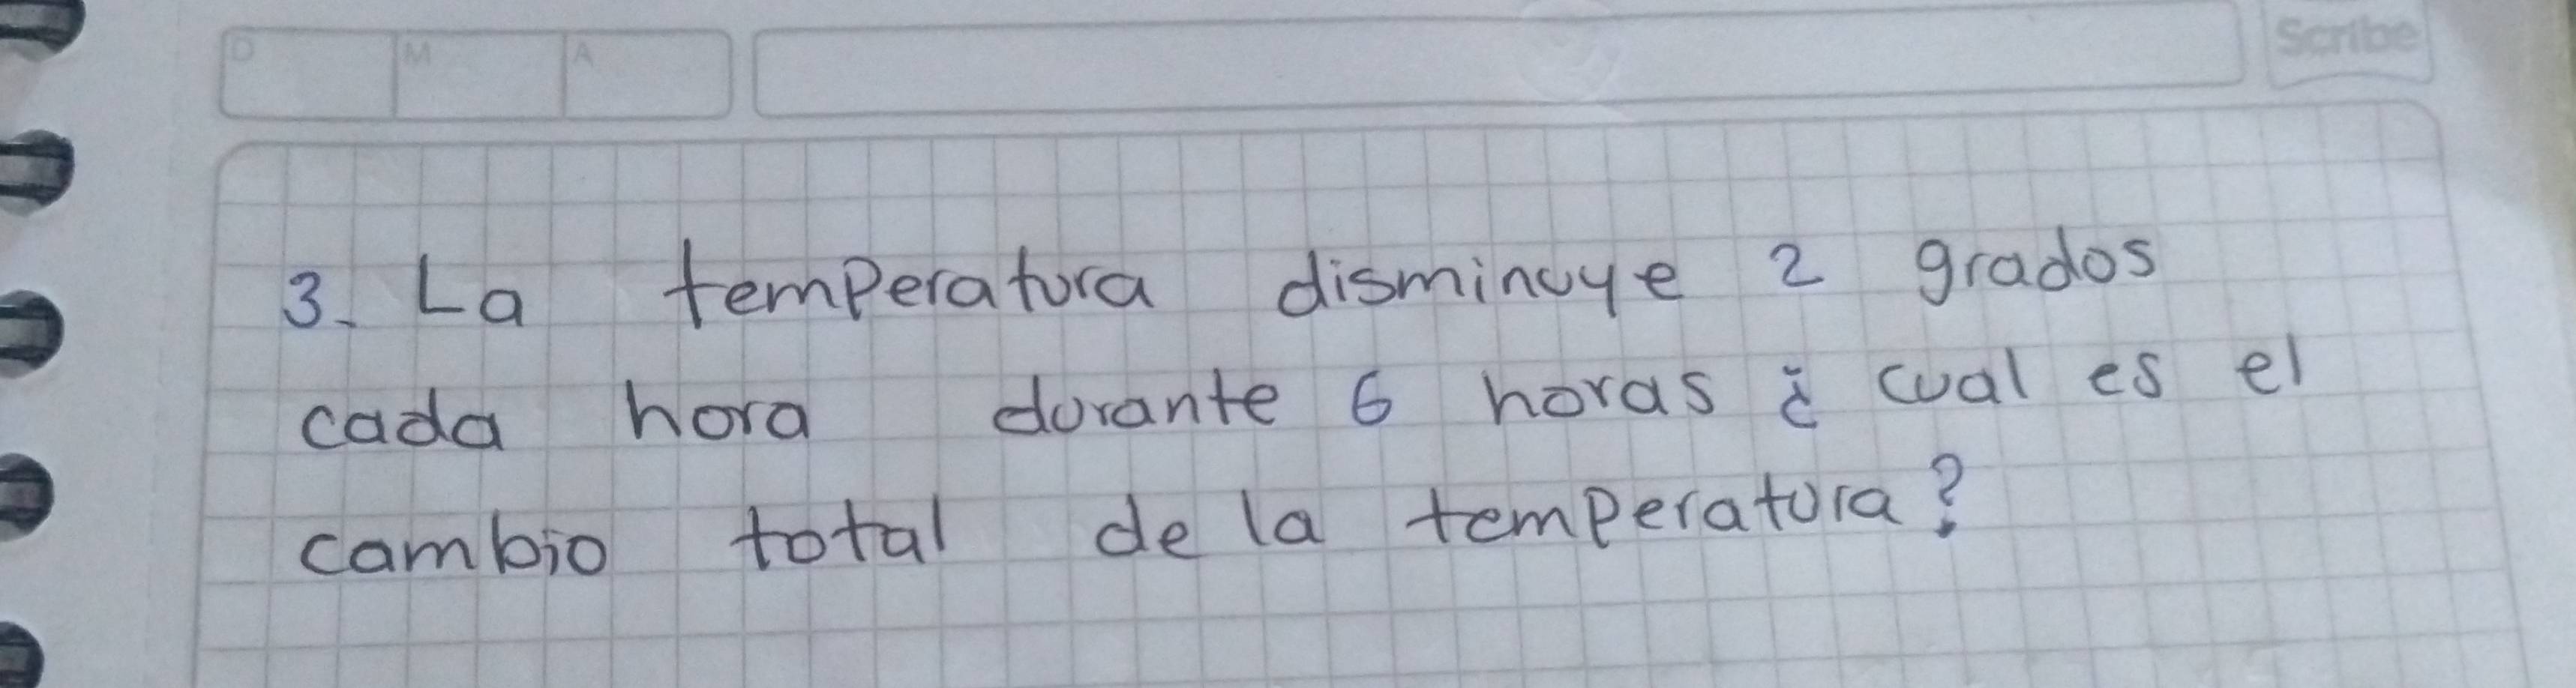 D M A
Scribe
3. La temperatura disminuye 2 grados
cada hora durante 6 horas ¿ cual es el
cambio total de la temperatura?